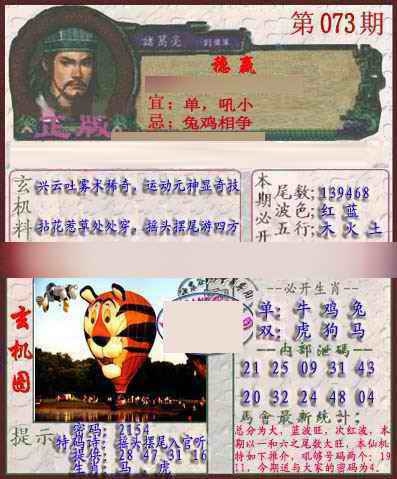 第073期
諸葛亮
穩贏
宜：单，吼小
忌：兔鸡相争
正版
玄机料
兴云吐雾术稀奇，运动元神显奇技
拈花惹草处处穿，摇头摆尾游四方
本期必开
尾数：139468
波色：红 蓝
五行：木 火 土
玄机图
--必开生肖--
单：牛 鸡 兔
双：虎 狗 马
--内部泄码--
21 25 09 31 43
20 32 24 48 04
馬會最新統計：
总分为大，蓝波旺，次红波，本
期以一和六之尾数大旺，本仙机
特如下推介，吼够号码两个：19
11，今期送与大家的密码为4．
提示
密码：2154
特码诗：摇头摆尾入官听
提供：28 47 31 16
生肖：马 虎